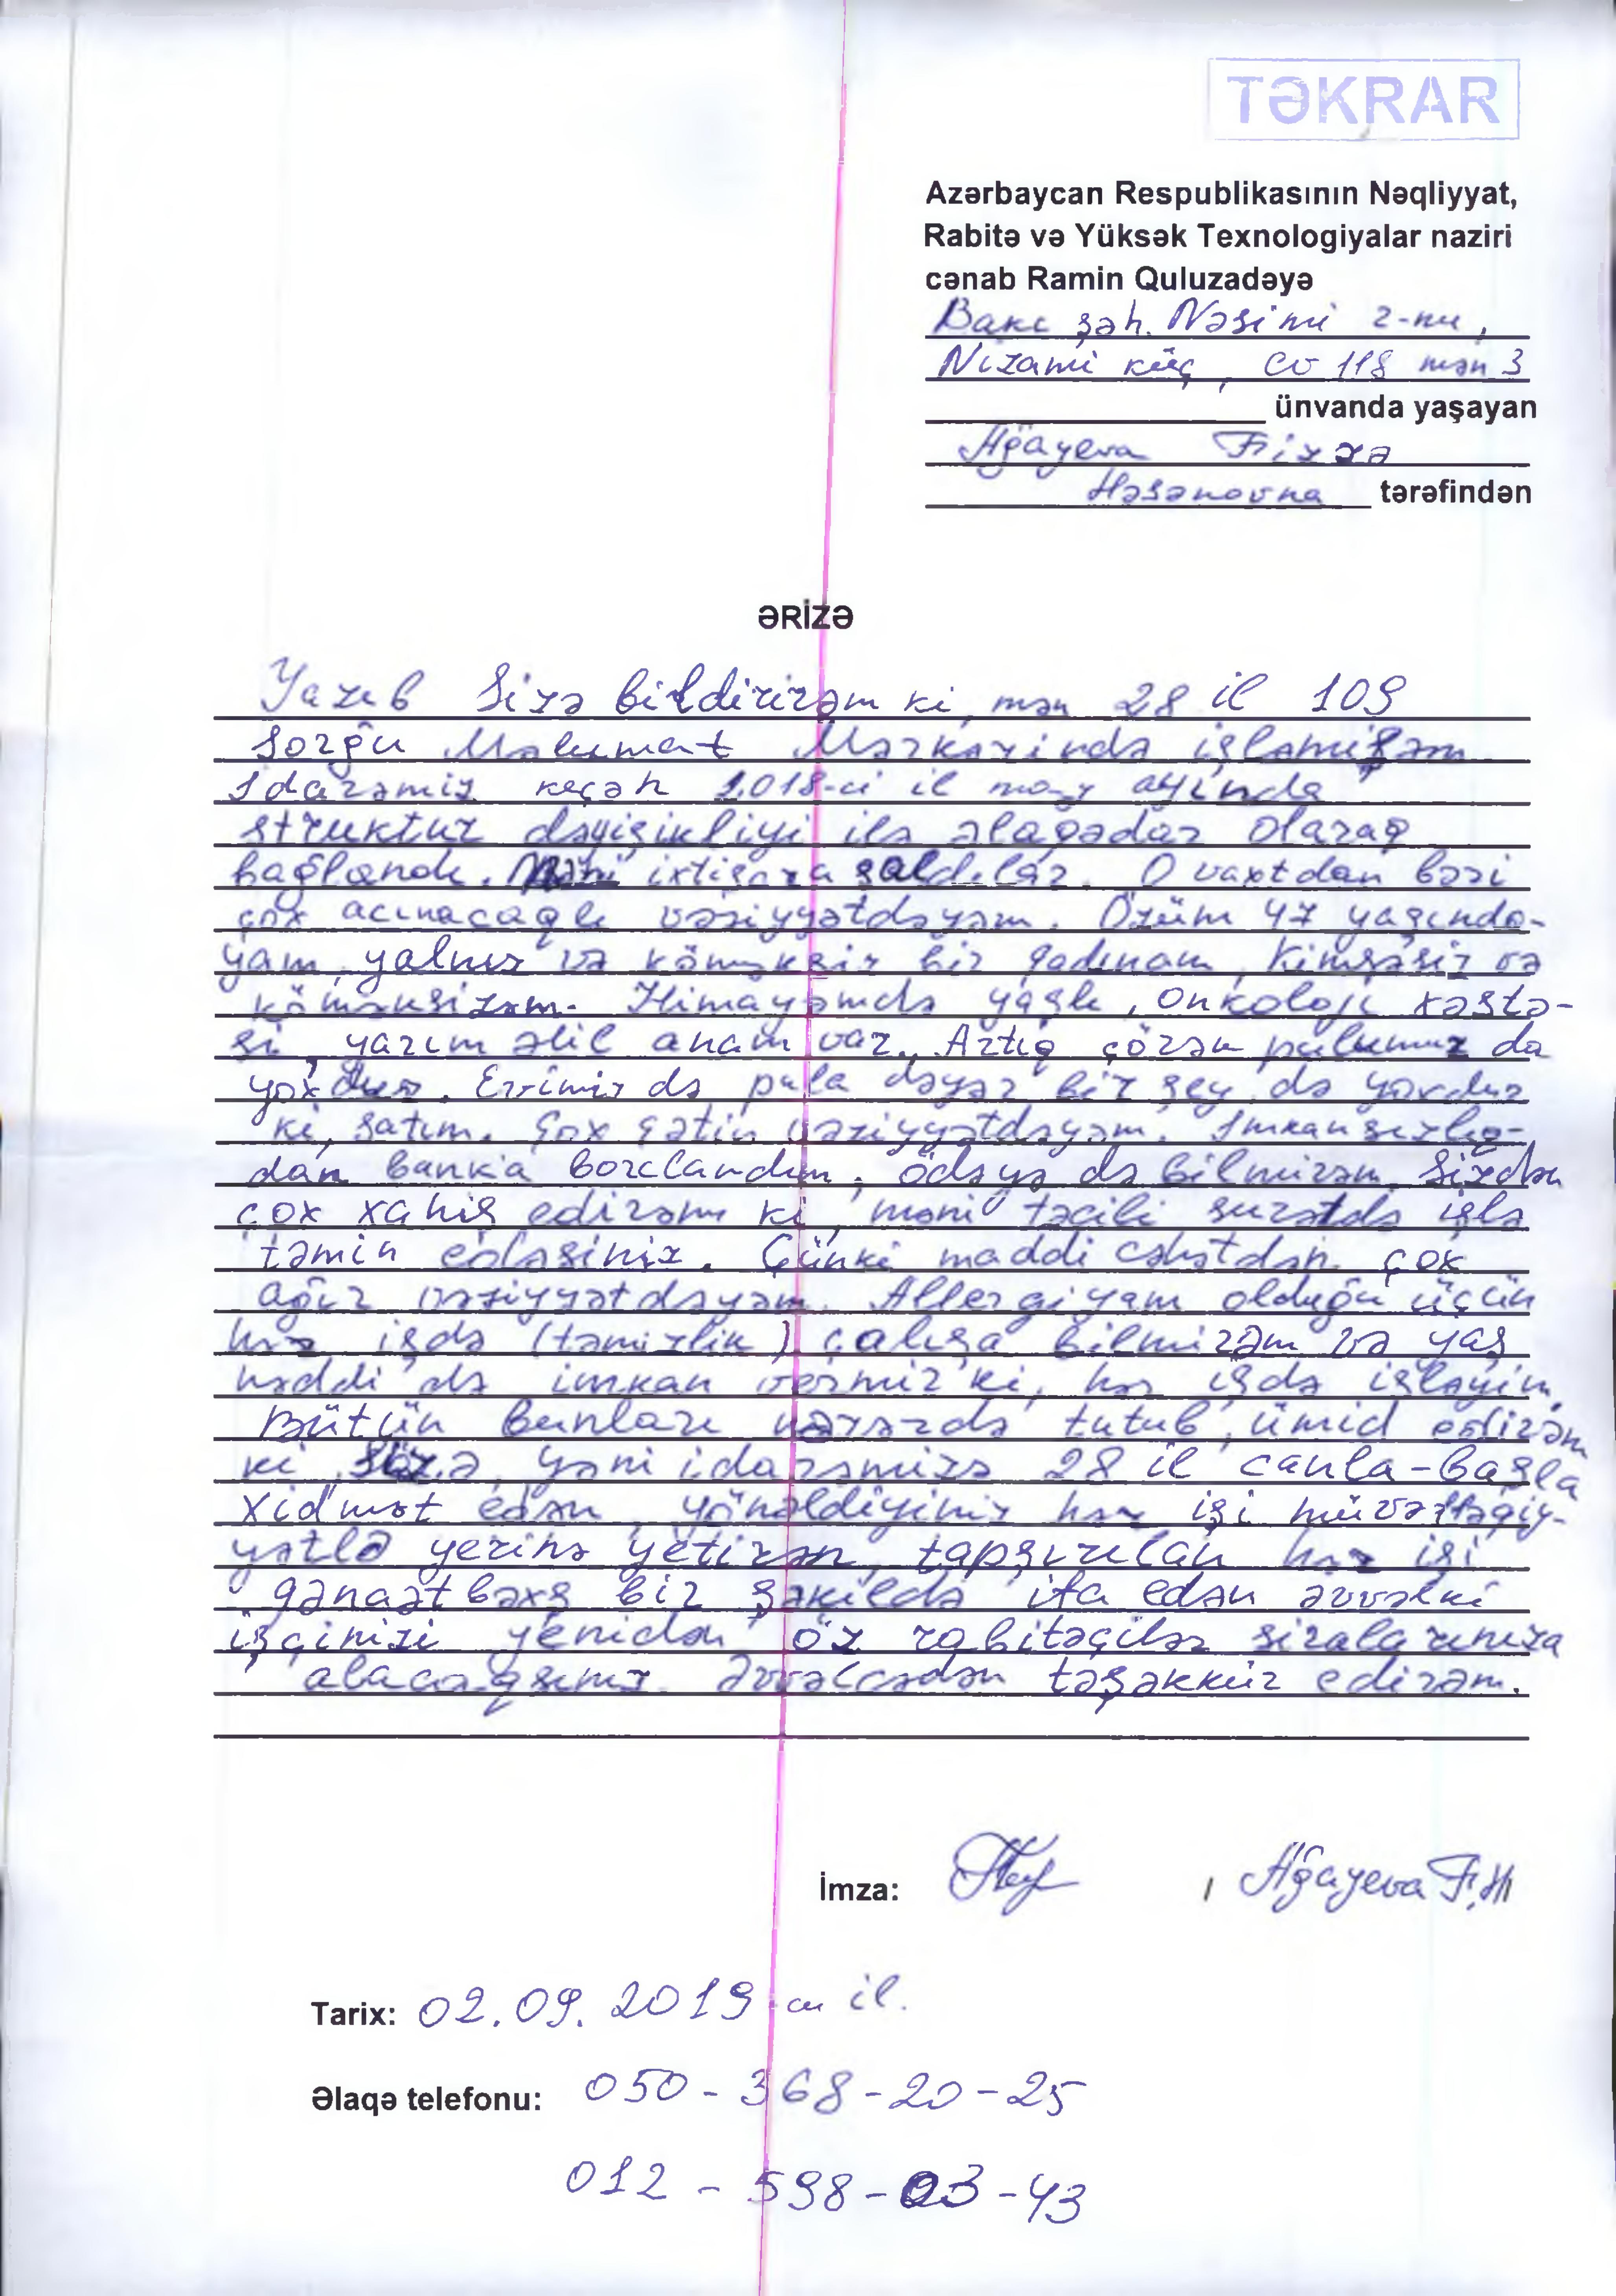 TƏKRAR
Azərbaycan Respublikasının Nəqliyyat,
Rabitə və Yüksək Texnologiyalar naziri
cənab Ramin Quluzadəyə
Bakı şəh. Nəsimi 2-nu,
Nizami küç, ev 118 mən 3
ünvanda yaşayan
Ağayeva Fizzə
Həsənovna tərəfindən
ƏRİZƏ
Yazıb Sizə bildirirəm ki, mən 28 il 109
Sorğu Məlumat Mərkəzində işləmişəm
İdarəmiz keçən 2018-ci il may ayında
struktur dəyişikliyi ilə əlaqədar olaraq
bağlandı. Məni ixtisara saldılar. O vaxtdan bəri
çox acınacaqlı vəziyyətdəyəm. Özüm 47 yaşında-
yam, yalnız və köməksiz bir qadınam, kimsəsiz və
köməksizəm. Himayəmdə yaşlı, onkoloji xəstə-
si, yarım əlil anam var. Artıq çörək pulumuz da
yoxdur. Evimizdə pula dəyər bir şey də yoxdur
ki, satım. Çox çətin vəziyyətdəyəm. İmkansızlıq-
dan banka borclandım, ödəyə də bilmirəm. Sizdən
çox xahiş edirəm ki, məni təcili surətdə işlə
təmin edəsiniz. Çünki maddi cəhətdən çox
ağır vəziyyətdəyəm. Allergiyam olduğu üçün
hər işdə (təmizlik) çalışa bilmirəm və yaş
həddi də imkan vermir ki, hər işdə işləyim.
Bütün bunları nəzərdə tutub, ümid edirəm
ki, Sizə, yəni idarəmizə 28 il canla-başla
xidmət edən, yönəldiyiniz hər işi müvəffəqiy-
yətlə yerinə yetirən, tapşırılan hər işi
qənaətbəxş bir şəkildə ifa edən əvvəlki
işçinizi yenidən öz rabitəçilər sıralarınıza
alacaqsınız. Əvvəlcədən təşəkkür edirəm.
İmza: Ağayeva F.H
Tarix: 02.09.2019-cu il.
Əlaqə telefonu: 050-368-20-25
012-598-03-43